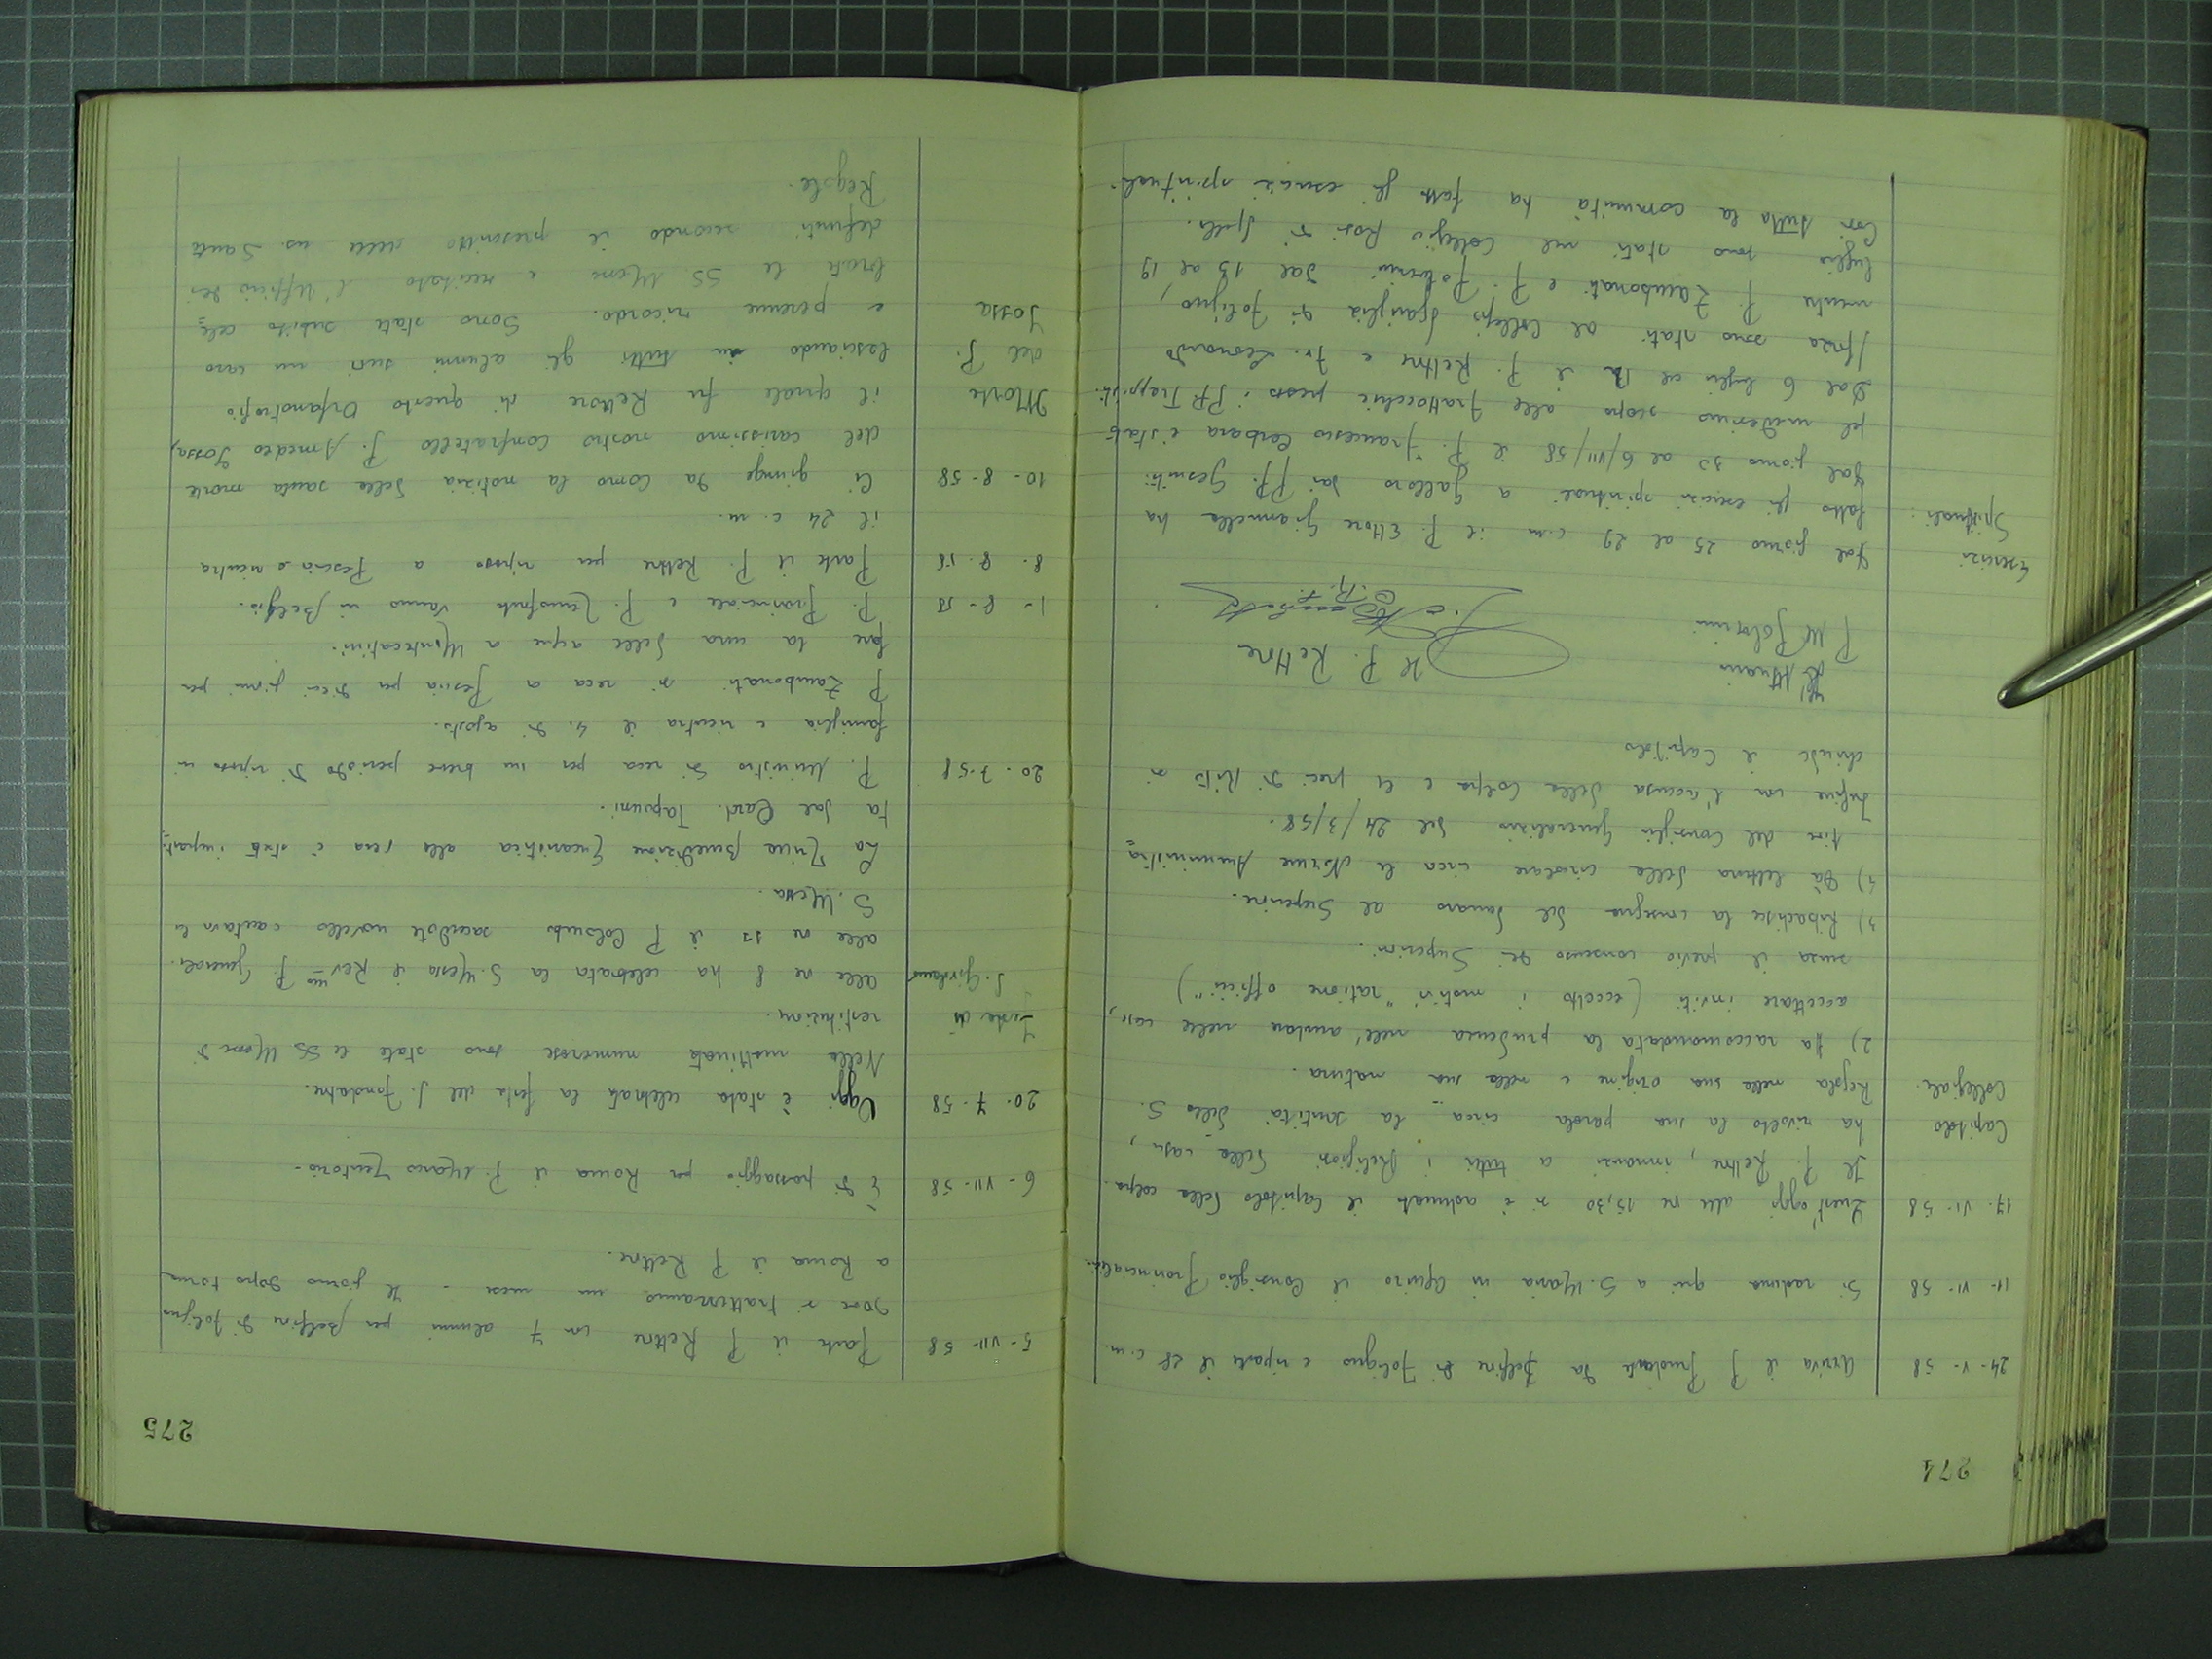 274
24-V-58 Arriva il P. Pundante da Belfiore di Foligno e riparte il 28 c.m.
11-VI-58 Si raduna qui a S. Maria in Aquiro il Consiglio Provinciale.
17-VI-58 Quest'oggi alle ore 15,30 si è adunato il Capitolo della colpa.
Il P. Rettore, innanzi a tutti i Religiosi della casa,
Capitolo ha rivolto la sua parola circa la santità della S.
Collegiale. Regola nella sua origine e nella sua natura.
2) Ha raccomandata la prudenza nell'andare nelle case,
accettare inviti (eccetto i motivi "ratione officii")
senza il previo consenso dei Superiori.
3) Ribadisce la consegna del denaro al Superiore.
4) Dà lettura della circolare circa le Norme Amministra=
tive del Consiglio Generalizio del 24/3/58.
Infine con l'accusa della Colpa e le preci di Rito si
chiude il Capitolo
Il P. Rettore
P. M. Polverini
C.R.S.
Esercizi Dal giorno 25 al 29 c.m. il P. Ettore Giannella ha
Spirituali: fatto gli esercizi spirituali a Galloro dai PP. Gesuiti.
Dal giorno 30 al 6/VII/58 il P. Francesco Cerbara è stato
pel medesimo scopo alle Frattocchie presso i PP. Trappisti.
Dal 6 luglio al 12 il P. Rettore e Fr. Leonardo
Sforza sono stati al Collegio Sgariglia di Foligno,
mentre P. Zambonati e P. Polverini dal 13 al 19
luglio sono stati nel Collegio Rosi di Spello.
Così tutta la comunità ha fatto gli esercizi spirituali.
275
5-VII-58 Parte il P. Rettore con 7 alunni per Belfiore di Foligno
dove si tratterranno un mese - Il giorno dopo torna
a Roma il P. Rettore.
6-VII-58 È di passaggio per Roma il P. Marco Tentorio.
20-7-58 Oggi è stata celebrata la festa del S. Fondatore.
Nella mattinata numerose sono state le SS. Messe di
Festa di restituzione.
S. Girolamo alle ore 8 ha celebrata la S. Messa il Rev.mo P. Generale.
alle ore 11 il P. Colombo sacerdote novello cantava la
S. Messa.
La Trina Benedizione Eucaristica alla sera è stata imparti=
ta dal Card. Tappuni.
20-7-58 P. Ministro si reca per un breve periodo di riposo in
famiglia e rientra il 4 di agosto.
P. Zambonati si reca a Pescia per dieci giorni per
fare la cura delle acque a Montecatini.
1-8-58 P. Provinciale e P. vanno in Belgio.
8-8-58 Parte il P. Rettore per riposo a Pescia e rientra
il 24 c.m.
10-8-58 Ci giunge da Como la notizia della santa morte
del carissimo nostro confratello P. Amedeo Jossa,
Morte il quale fu Rettore di questo Orfanotrofio
del P. lasciando in tutti gli alunni suoi un caro
Jossa e perenne ricordo. Sono state subito cele=
brate le SS. Messe e recitato l'Ufficio dei
defunti secondo il prescritto delle ns. Sante
Regole.